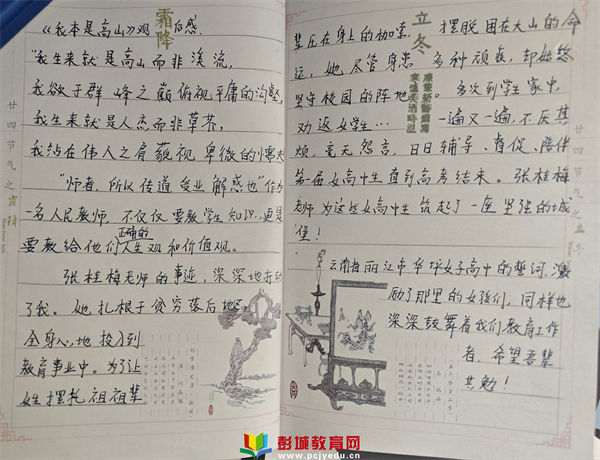 霜降
《我本是高山》观后感.
"我生来就是高山而非溪流,
我欲于群峰之巅俯视平庸的沟壑,
我生来就是人杰而非草芥,
我站在伟人之肩藐视卑微的懦夫
"师者,所以传道受业解惑也"作为
一名人民教师,不仅仅要教学生知识,更是
要教给他们正确的人生观和价值观。
张桂梅老师的事迹,深深地打动
了我。她扎根于贫穷落后地区,
全身心地投入到
教育事业中。为了让
姓摆托祖祖辈
廿四节气之霜降
立冬
辈压在身上的枷锁,摆脱困在大山的命
运,她尽管身患多种顽疾,却始终
坚守校园的阵地。多次到学生家中,
劝返女学生…一遍又一遍,不厌其
烦,毫无怨言,日日辅导、督促、陪伴
第一届女高中生直到高考结束。张桂梅
老师为这些女高中生筑起了一座坚强的城
堡!
云南省丽江市华坪女子高中的誓词,激
励了那里的女孩们,同样也
深深鼓舞着我们教育工作
者.希望吾辈
共勉!
廿四节气之立冬
彭城教育网
www.pcjyedu.cn